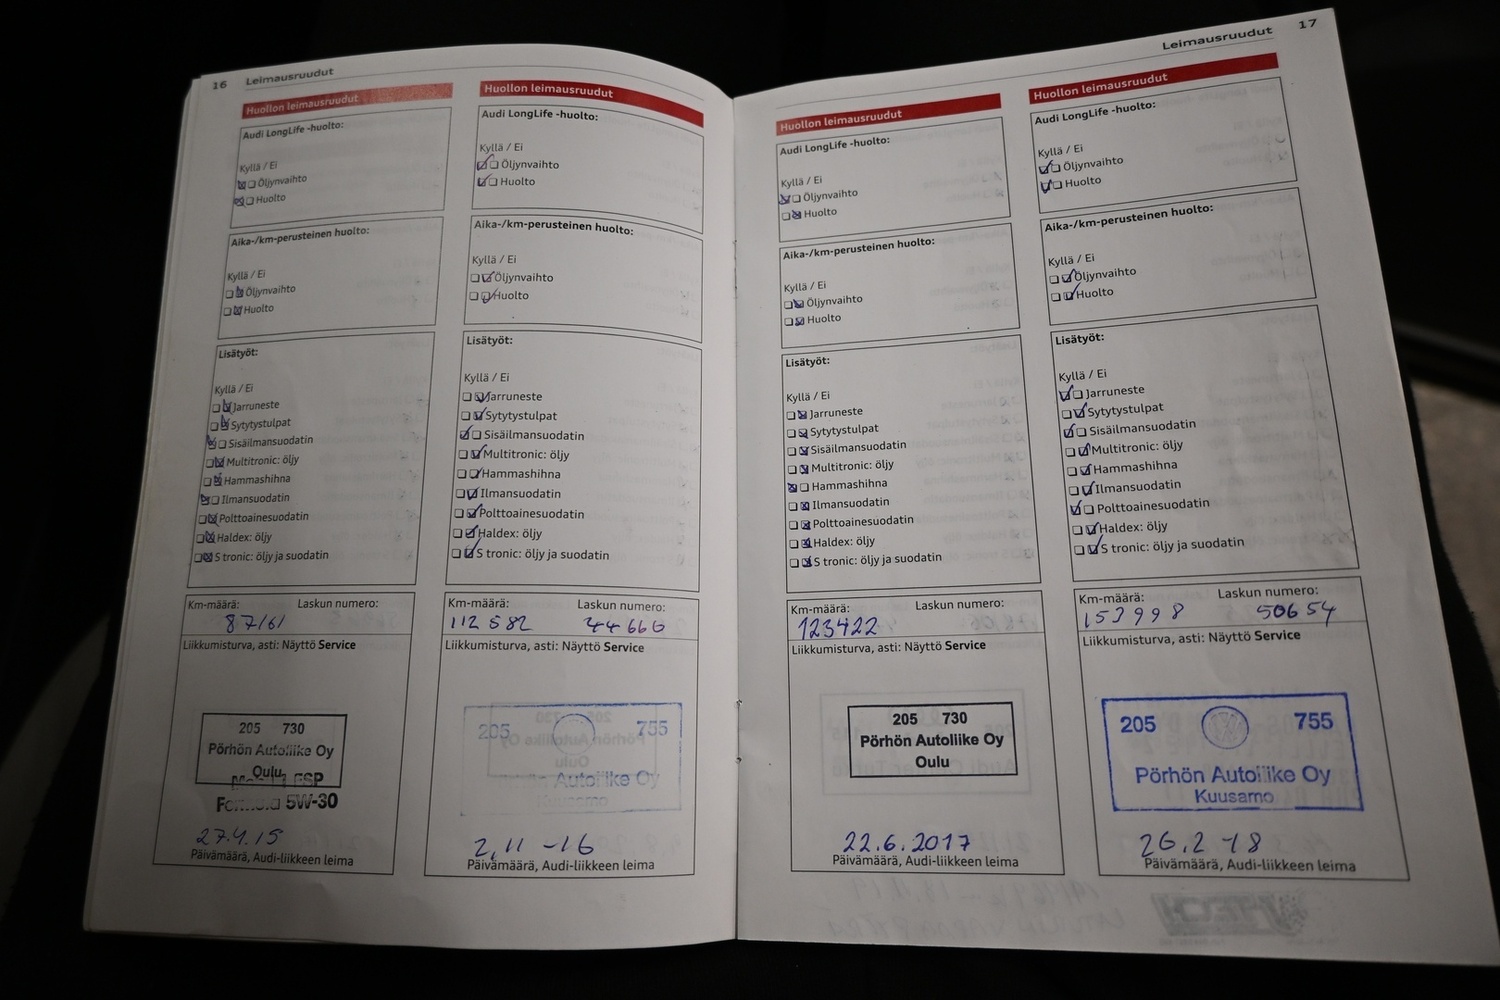 16 Leimausruudut
Huollon leimausruudut
Audi LongLife -huolto:
Kyllä / Ei
Öljynvaihto
Huolto
Aika-/km-perusteinen huolto:
Kyllä / Ei
Öljynvaihto
Huolto
Lisätyöt:
Kyllä / Ei
Jarruneste
Sytytystulpat
Sisäilmansuodatin
Multitronic: öljy
Hammashihna
Ilmansuodatin
Polttoainesuodatin
Haldex: öljy
S tronic: öljy ja suodatin
Km-määrä: Laskun numero:
87161
Liikkumisturva, asti: Näyttö Service
205 730
Pörhön Autoliike Oy
Oulu
ESP
Formula 5W-30
27.4.15
Päivämäärä, Audi-liikkeen leima
Huollon leimausruudut
Audi LongLife -huolto:
Kyllä / Ei
Öljynvaihto
Huolto
Aika-/km-perusteinen huolto:
Kyllä / Ei
Öljynvaihto
Huolto
Lisätyöt:
Kyllä / Ei
Jarruneste
Sytytystulpat
Sisäilmansuodatin
Multitronic: öljy
Hammashihna
Ilmansuodatin
Polttoainesuodatin
Haldex: öljy
S tronic: öljy ja suodatin
Km-määrä: Laskun numero:
112 582 44666
Liikkumisturva, asti: Näyttö Service
205 755
Pörhön Autoliike Oy
Kuusamo
2,11 -16
Päivämäärä, Audi-liikkeen leima
Leimausruudut 17
Huollon leimausruudut
Audi LongLife -huolto:
Kyllä / Ei
Öljynvaihto
Huolto
Aika-/km-perusteinen huolto:
Kyllä / Ei
Öljynvaihto
Huolto
Lisätyöt:
Kyllä / Ei
Jarruneste
Sytytystulpat
Sisäilmansuodatin
Multitronic: öljy
Hammashihna
Ilmansuodatin
Polttoainesuodatin
Haldex: öljy
S tronic: öljy ja suodatin
Km-määrä: Laskun numero:
123422
Liikkumisturva, asti: Näyttö Service
205 730
Pörhön Autoliike Oy
Oulu
22.6.2017
Päivämäärä, Audi-liikkeen leima
Huollon leimausruudut
Audi LongLife -huolto:
Kyllä / Ei
Öljynvaihto
Huolto
Aika-/km-perusteinen huolto:
Kyllä / Ei
Öljynvaihto
Huolto
Lisätyöt:
Kyllä / Ei
Jarruneste
Sytytystulpat
Sisäilmansuodatin
Multitronic: öljy
Hammashihna
Ilmansuodatin
Polttoainesuodatin
Haldex: öljy
S tronic: öljy ja suodatin
Km-määrä: Laskun numero:
153998 50654
Liikkumisturva, asti: Näyttö Service
205 755
Pörhön Autoliike Oy
Kuusamo
26.2 -18
Päivämäärä, Audi-liikkeen leima